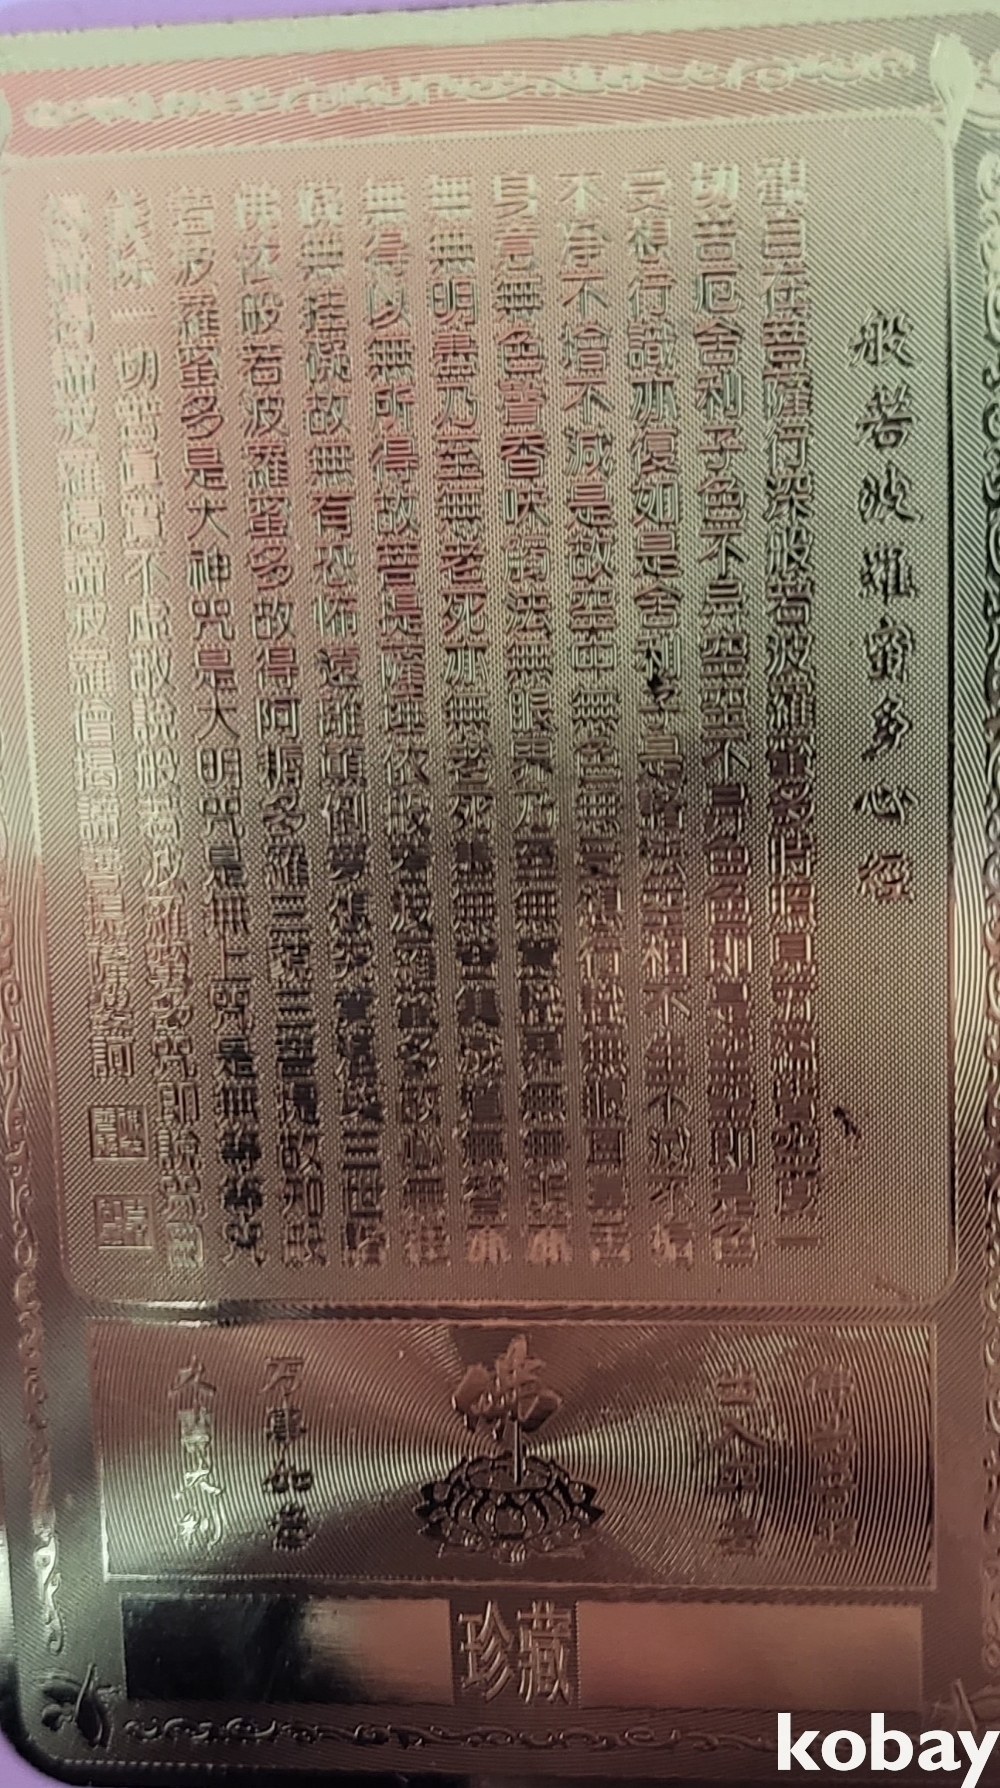 般若波羅蜜多心經
觀自在菩薩行深般若波羅蜜多時照見五蘊皆空度一
切苦厄舍利子色不異空空不異色色即是空空即是色
受想行識亦復如是舍利子是諸法空相不生不滅不垢
不淨不增不減是故空中無色無受想行識無眼耳鼻舌
身意無色聲香味觸法無眼界乃至無意識界無無明亦
無無明盡乃至無老死亦無老死盡無苦集滅道無智亦
無得以無所得故菩提薩埵依般若波羅蜜多故心無罣
礙無罣礙故無有恐怖遠離顛倒夢想究竟涅槃三世諸
佛依般若波羅蜜多故得阿耨多羅三藐三菩提故知般
若波羅蜜多是大神咒是大明咒是無上咒是無等等咒
能除一切苦真實不虛故說般若波羅蜜多咒即說咒曰
揭諦揭諦波羅揭諦波羅僧揭諦菩提薩婆訶
出入平安
佛
万事如意
大吉大利
珍藏
kobay